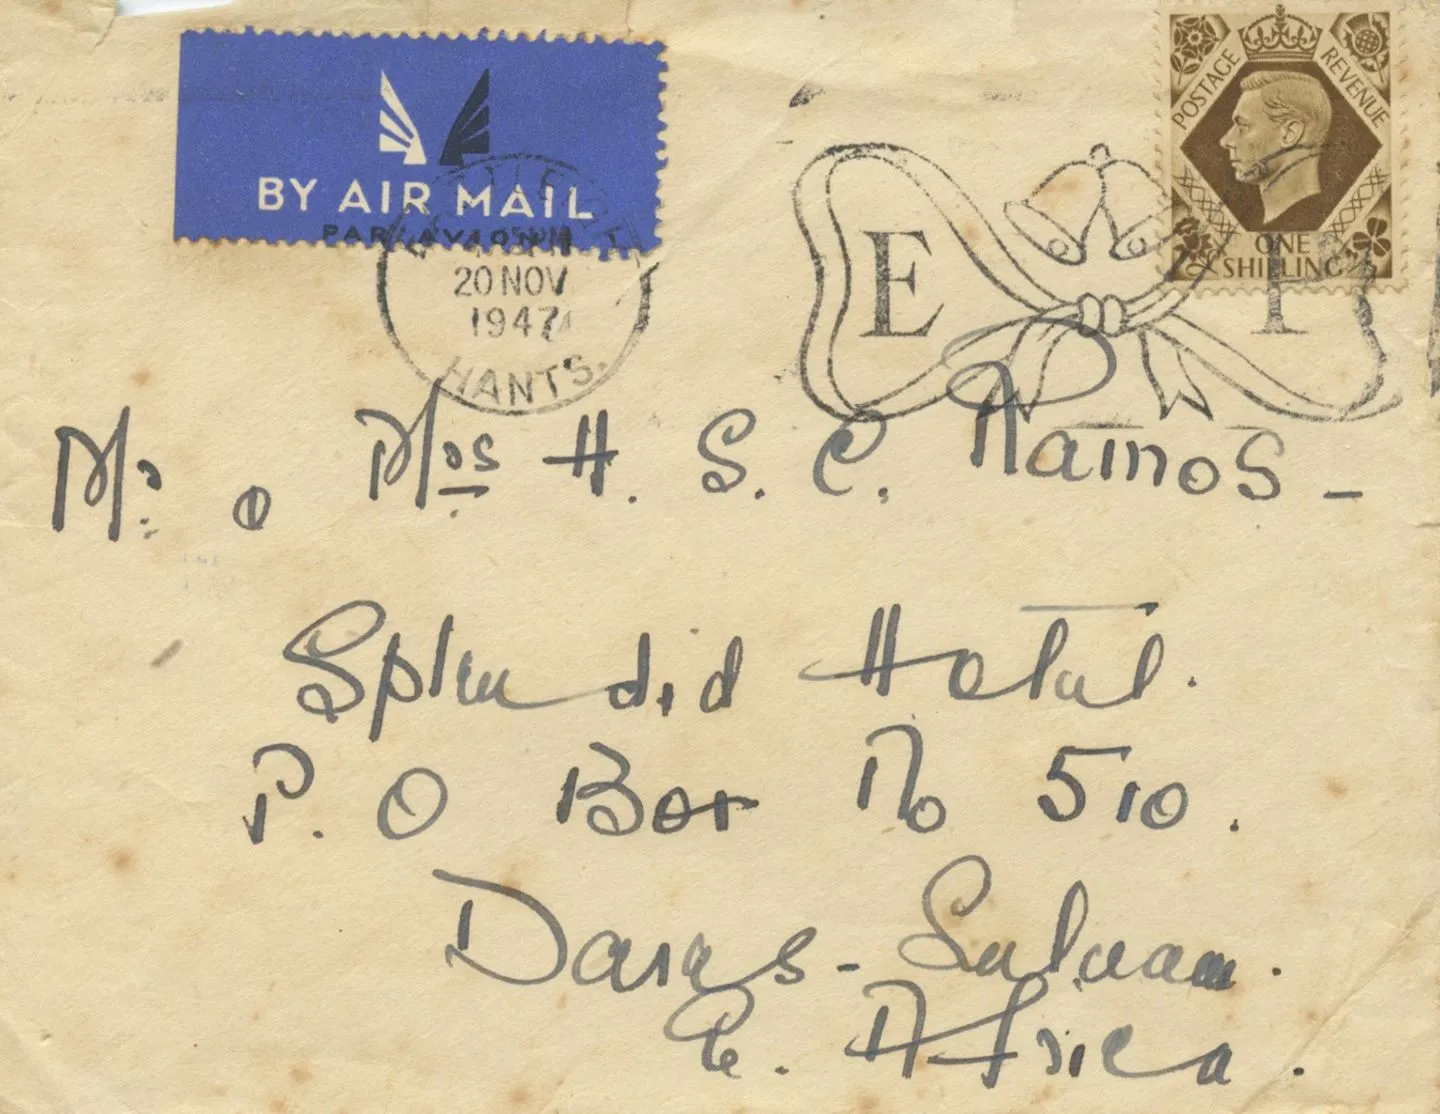 BY AIR MAIL
PAR AVION
20 NOV
1947
HANTS.
E P
POSTAGE REVENUE
ONE SHILLING
Mr. & Mrs H. S. C. Ramos -
Splendid Hotel.
P. O Box No 510.
Dar-es-Salaam.
E. Africa.